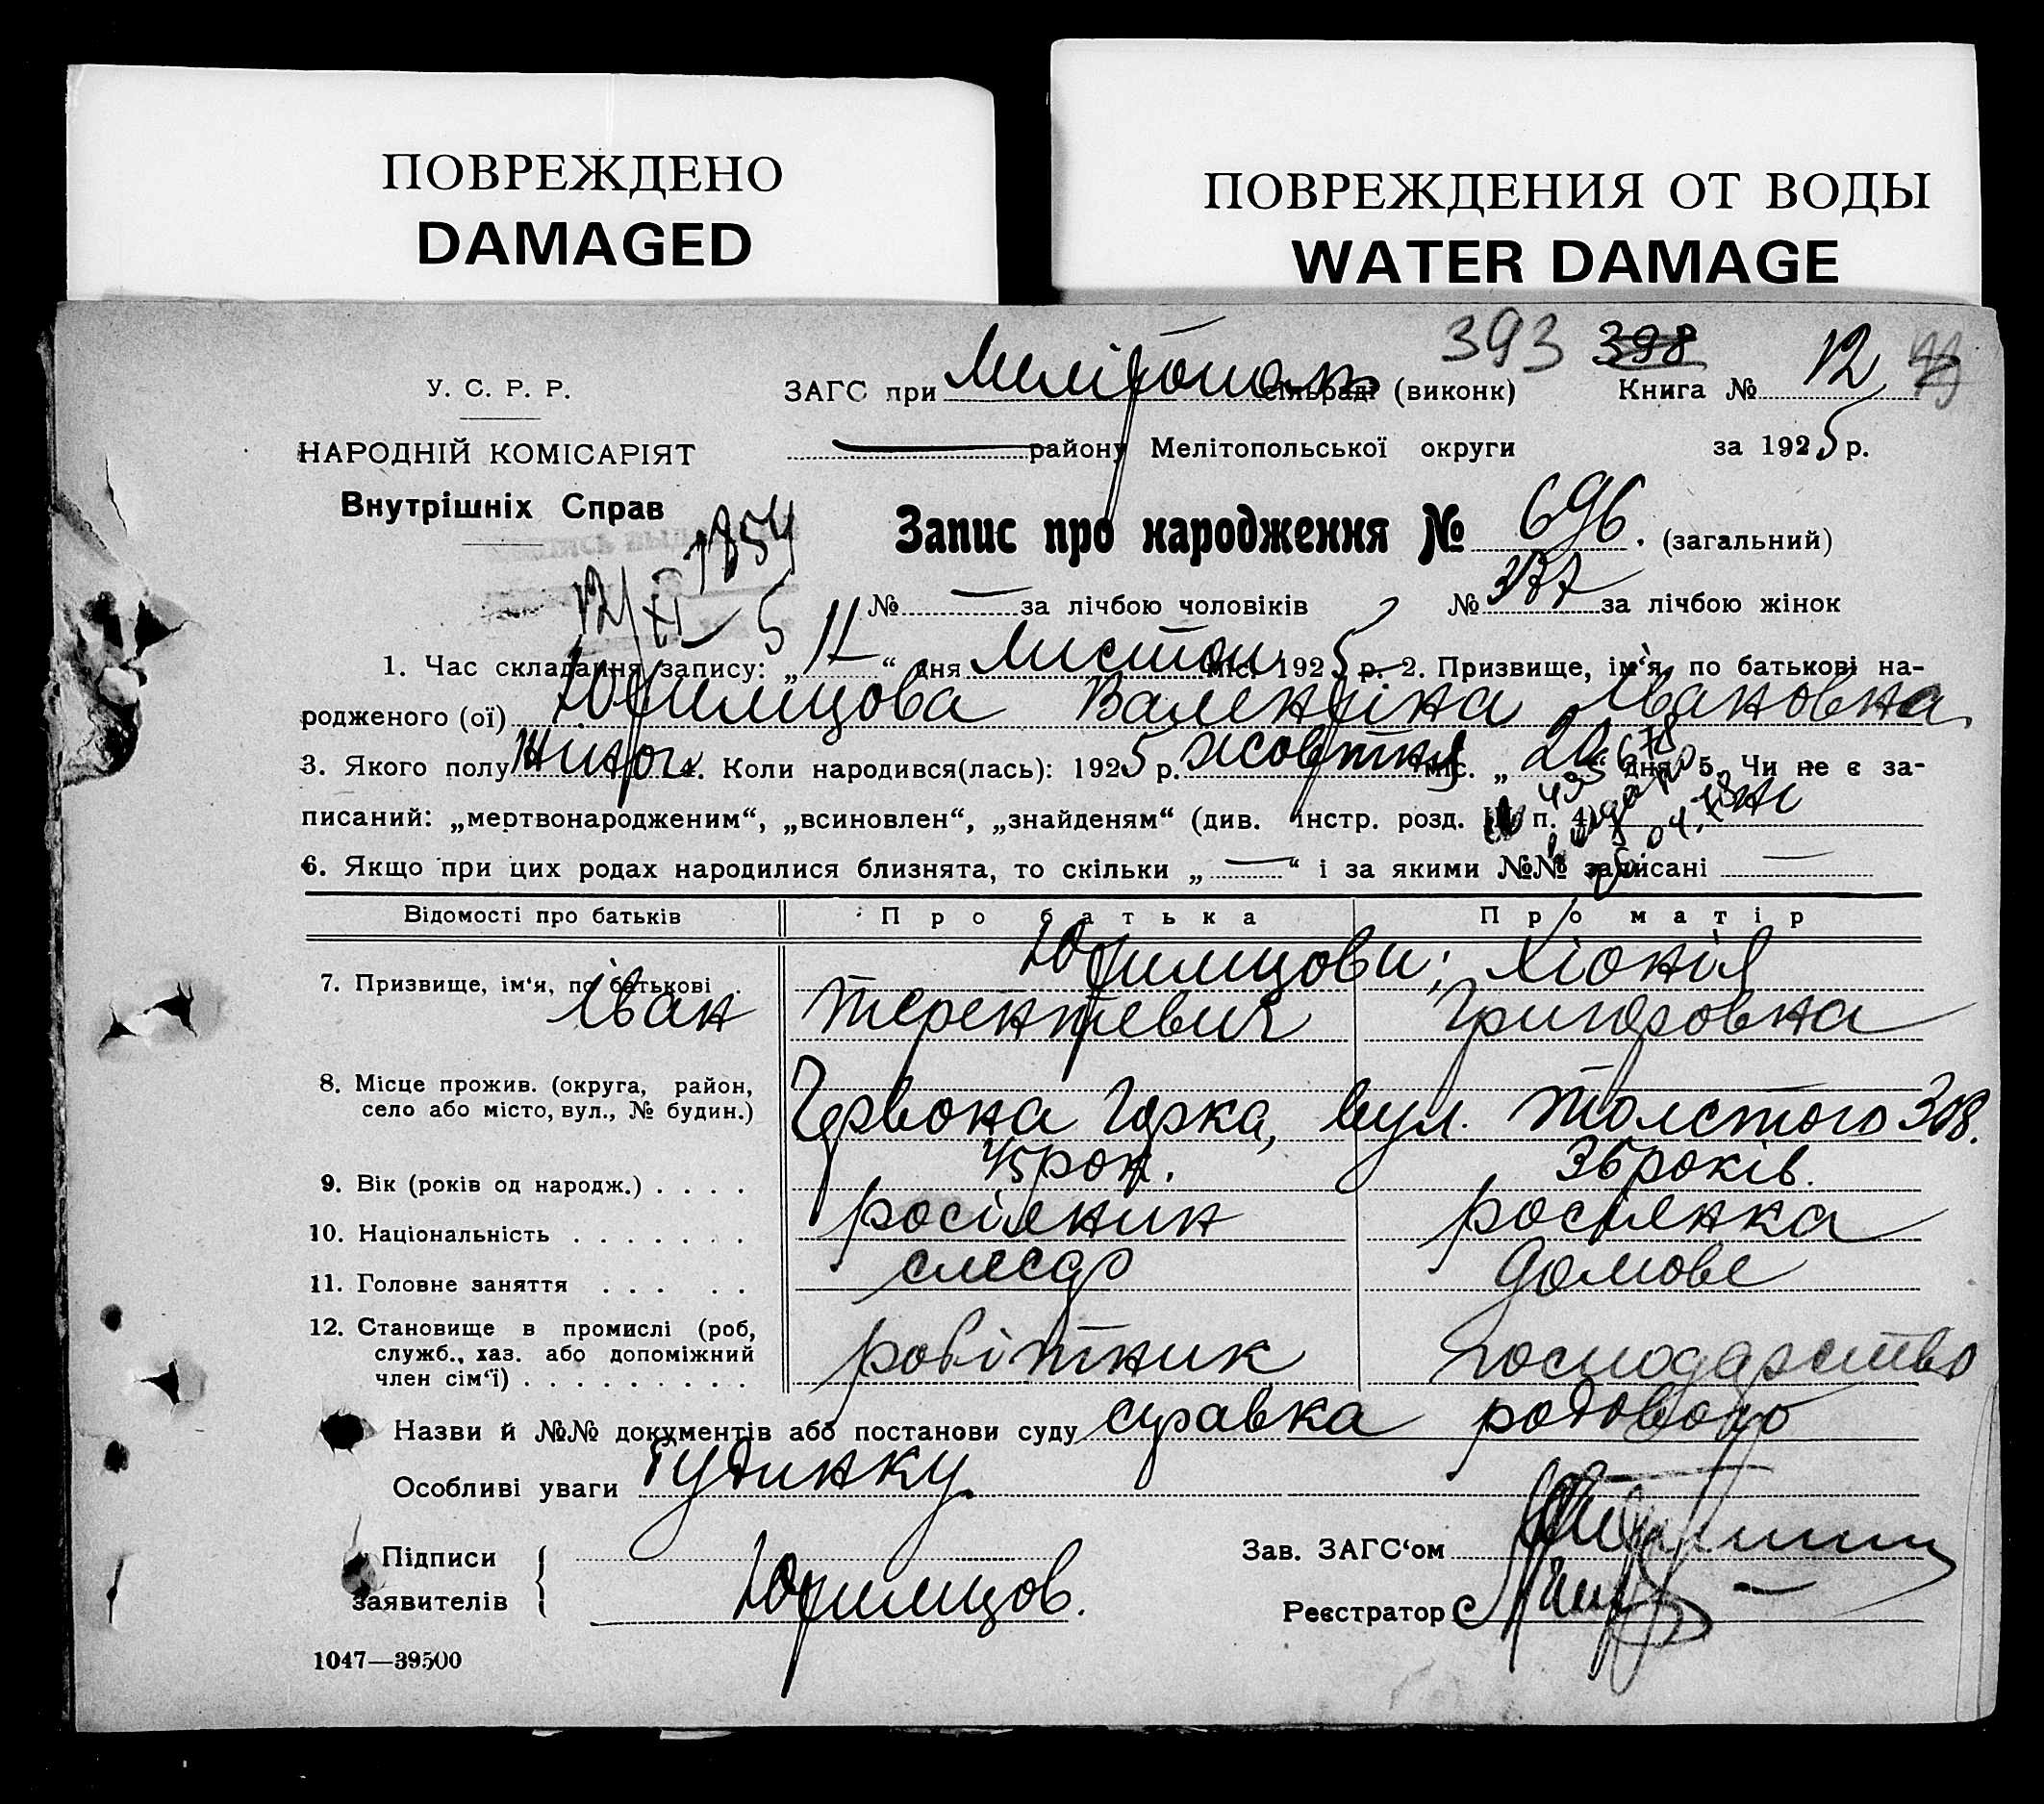 ПОВРЕЖДЕНО
DAMAGED
ПОВРЕЖДЕНИЯ ОТ ВОДЫ
WATER DAMAGE
393 398
У. С. Р. Р.
ЗАГС при Мелітополь сільраді (виконк) Книга № 12
НАРОДНІЙ КОМІСАРІЯТ
району Мелітопольської округи за 1925 р.
Внутрішніх Справ
Запис про народження № 696. (загальний)
12/XI–5 1854
№ — за лічбою чоловіків № 337 за лічбою жінок
1. Час складання запису: „11“ дня Листоп міс. 1925 р. 2. Призвище, ім‘я, по батькові на-
родженого (ої) Юрилицова Валентина Івановна
3. Якого полу жиноч. Коли народився(лась): 1925 р. жовтня міс. „ “ дня. 5. Чи не є за-
писаний: „мертвонародженим“, „всиновлен“, „знайденям“ (див. інстр. розд. п. 4)
6. Якщо при цих родах народилися близнята, то скільки „—“ і за якими №№ записані —
Відомості про батьків Про батька Про матір
7. Призвище, ім‘я, по батькові . Юрилицови; Хіонія
Іван Терентієвич Григоровна
8. Місце прожив. (округа, район,
село або місто, вул., № будин.) Червона Горка, вул. Толстого 308.
9. Вік (років од народж.) . . . . 45 рок. 36 років.
10. Національність . . . . . . . росіянин росіянка
11. Головне заняття . . . . . слесар домове
12. Становище в промислі (роб,
служб., хаз. або допоміжний
член сім‘ї) . . . . . . . . . робітник господарство
Назви й №№ документів або постанови суду справка родового
Особливі уваги будинку.
Підписи
Заявителів
Юрилицов.
Зав. ЗАГС‘ом
Реєстратор
1047—39500